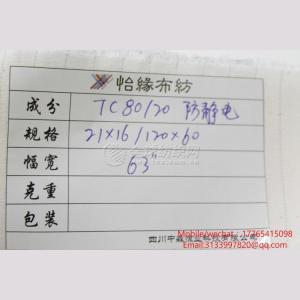 怡缘布纺
成分 TC80/20 防静电
规格 21×16/120×60
幅宽 63"
克重
包装
Mobile/wechat：17765415098
Email:3133997820@qq.com